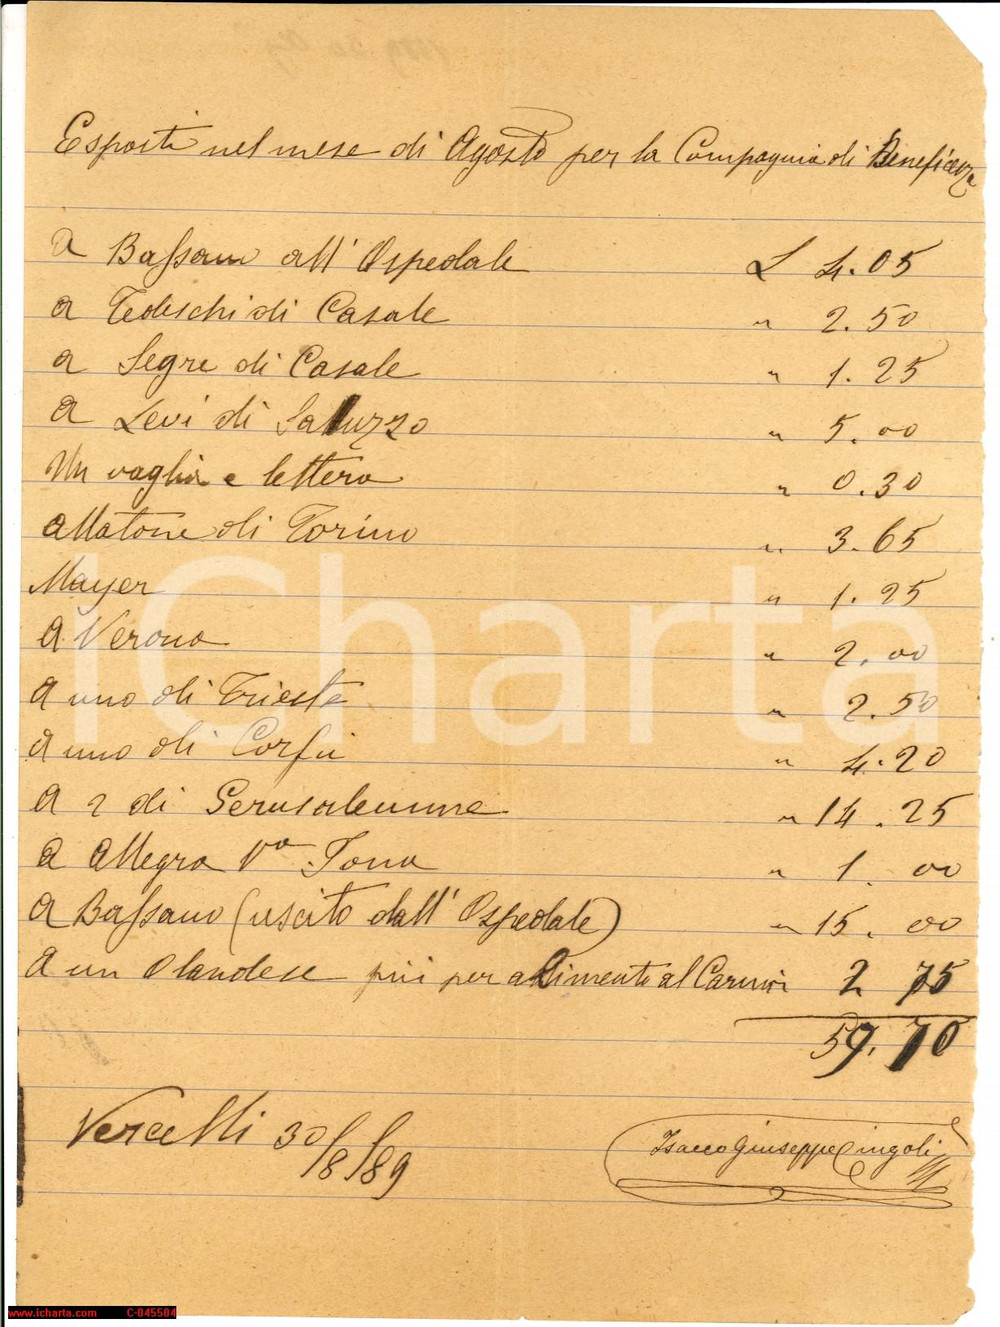 Esposti nel mese di Agosto per la Compagnia di Beneficenza
a Bassano all' Ospedale L 4.05
a Tedeschi di Casale " 2.50
a Segre di Casale " 1.25
a Levi di Saluzzo " 5.00
Un vaglia e lettera " 0.30
a Matone di Torino " 3.65
Mayer " 1.25
a Verona " 2.00
a uno di Trieste " 2.50
a uno di Corfu " 4.20
a 2 di Gerusalemme " 14.25
a Allegra Va Jona " 1.00
a Bassano (uscito dall' Ospedale) " 15.00
a un Olandese più per alimento al 2 75
59.70
Vercelli 30/8/89
Isacco Giuseppe Cingoli
iCharta
www.icharta.com C-045504